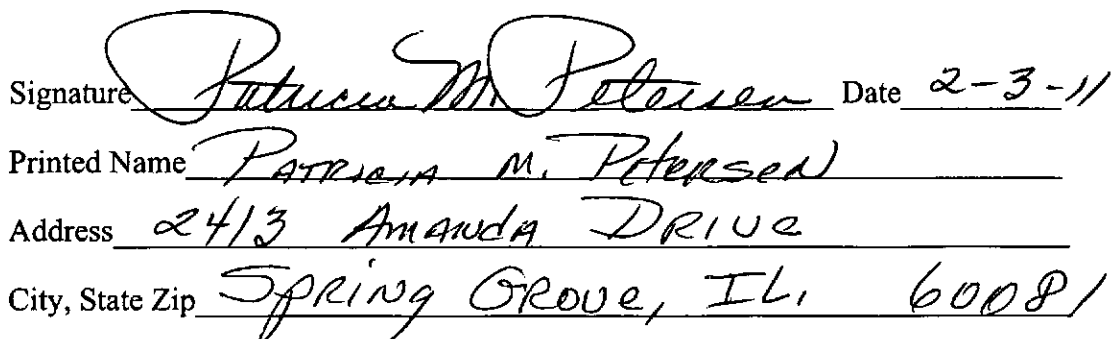 Signature Patricia M. Petersen Date 2-3-11
Printed Name PATRICIA M. PETERSEN
Address 2413 AMANDA DRIVE
City, State Zip SPRING GROVE, IL. 60081